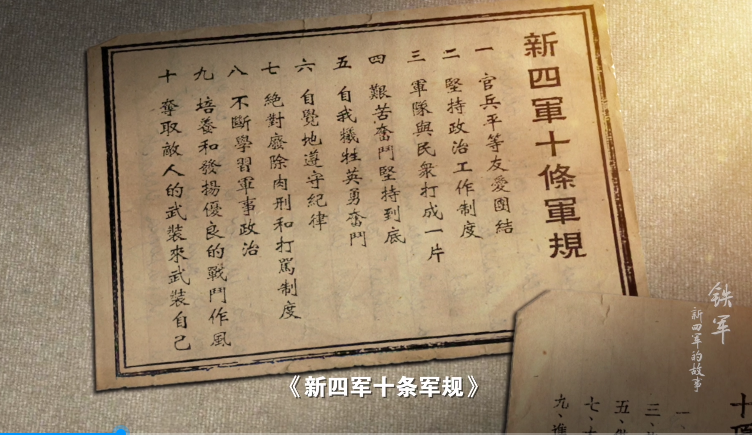 新四軍十條軍規
一 官兵平等友愛團結
二 堅持政治工作制度
三 軍隊與民衆打成一片
四 艱苦奮鬥堅持到底
五 自我犧牲英勇奮鬥
六 自覺地遵守紀律
七 絕對廢除肉刑和打罵制度
八 不斷學習軍事政治
九 培養和發揚優良的戰鬥作風
十 奪取敵人的武裝來武裝自己
铁军
新四军的故事
十
一、
三、
五、
七、
九、
《新四军十条军规》